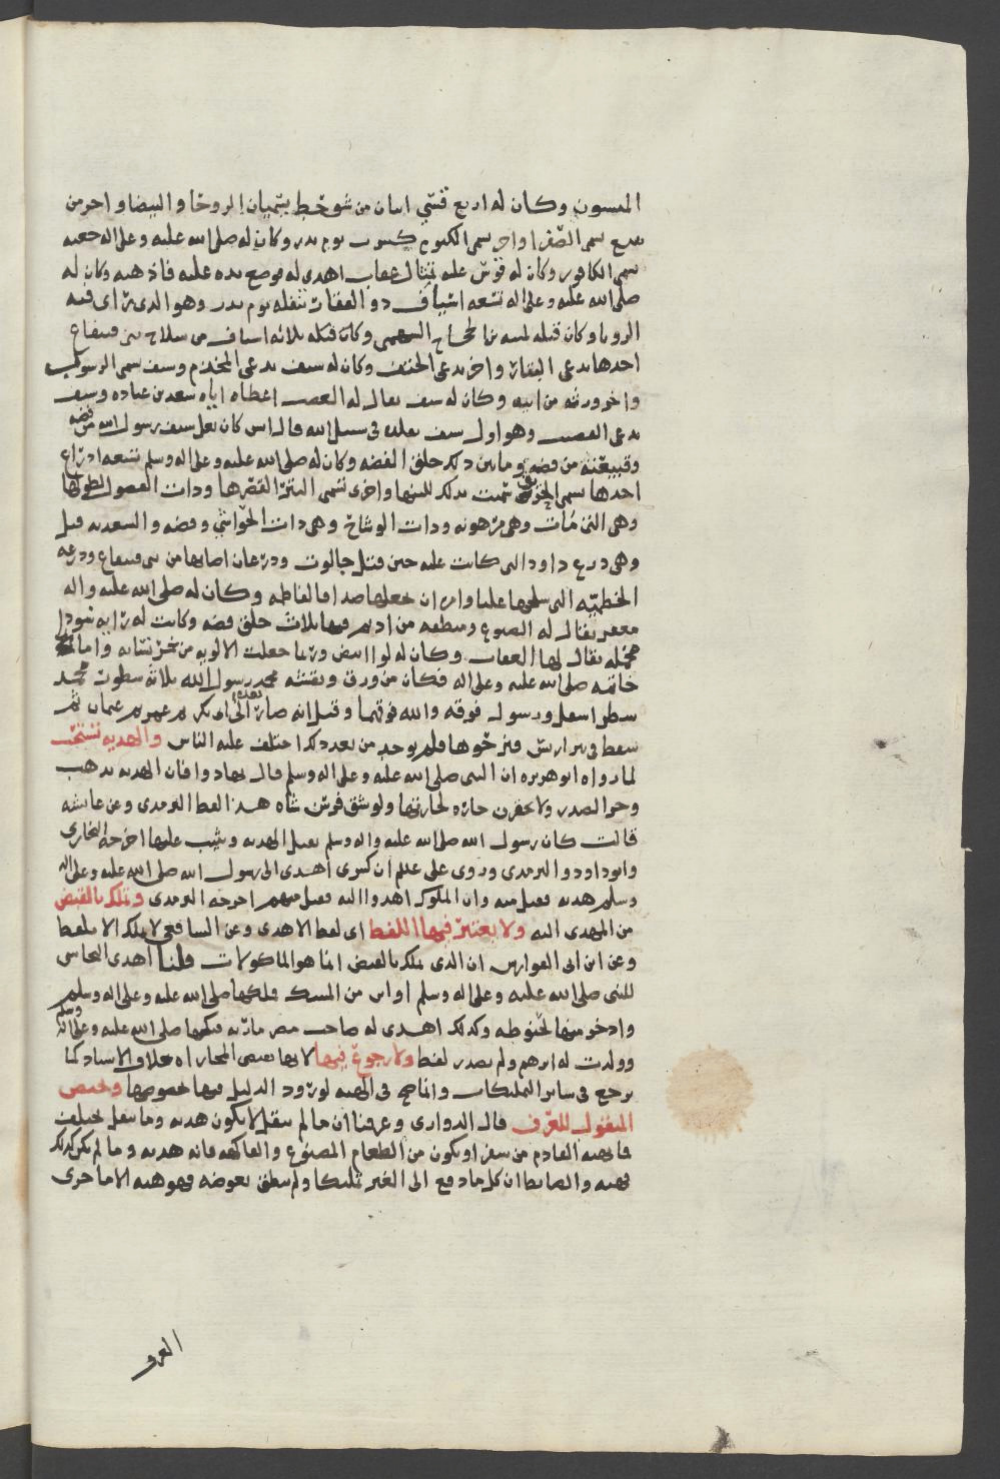 الميسون وكان له اربع قسي اثنان من شوحط يسميان الروحا والبيضا واخر من
نبع يسمى الصفرا واخر يسمى الكتوم كسرت يوم بدر وكان له صلى الله عليه وعلى اله جعبه
تسمى الكافور وكان له ترس عليه تمثال عقاب اهدي له فوضع يده عليه فاذهبه وكان له
صلى الله عليه وعلى اله تسعه اسياف ذو الفقار تنفله يوم بدر وهو الذي راى فيه
الرويا وكان قبله لمنبه بن الحجاج السهمي وكان قبله ثلاثه اسياف من سلاح بني قينقاع
احدها يدعى البتار واخر يدعى الحتف وكان له سيف يدعى المخذم وسيف يسمى الرسوب
واخر ورثه من ابيه وكان له سيف يقال له العضب اعطاه اياه سعد بن عباده وسيف
يدعى القضيب وهو اول سيف تقلده في سبيل الله قال انس كان نعل سيف رسول الله من فضه
وقبيعته من فضه وما بين ذلك حلق الفضه وكان له صلى الله عليه وعلى اله وسلم تسعه ادراع
احدها تسمى الخرنق سميت بذلك للينها واخرى تسمى البترا لقصرها وذات الفضول لطولها
وهي التي مات وهي مرهونه وذات الوشاح وهي ذات الحواشي وفضه والسعديه قيل
وهي درع داود التي كانت عليه حين قتل جالوت ودرعان اصابهما من بني قينقاع ودرعه
الخطميه التي سلحها عليا وامره ان يجعلها صداقا لفاطمه وكان له صلى الله عليه واله
مغفر يقال له السبوغ ومنطقه من اديم فيها ثلاث حلق فضه وكانت له رايه سودا
مخمله يقال لها العقاب وكان له لوا ابيض وربما جعلت الالويه من خمر نسائه واما
خاتمه صلى الله عليه وعلى اله فكان من ورق ونقشه محمد رسول الله ثلاثه سطور محمد
سطر اسفل ورسول فوقه والله فوقهما وقيل انه صار بعده الى ابي بكر ثم عمر ثم عثمان ثم
سقط في بير اريس فنزحوها فلم يوجد من بعد ذلك اختلف عليه الناس والهديه تستحب
لما رواه ابو هريره ان النبي صلى الله عليه وعلى اله وسلم قال تهادوا فان الهديه تذهب
وحر الصدر ولا تحقرن جاره لجارتها ولو شق فرسن شاه هذا لفظ الترمذي وعن عائشه
قالت كان رسول الله صلى الله عليه واله وسلم يقبل الهديه ويثيب عليها اخرجه البخاري
وابو داود والترمذي وروي علي عللم ان كسرى اهدى الى رسول الله صلى الله عليه وعلى اله
وسلم هديه فقبل منه وان الملوك اهدوا اليه فقبل منهم اخرجه الترمذي وتملك بالقبض
من المهدى اليه ولا يعتبر فيها اللفظ اي لفظ الاهدى وعن الشافعي لا تملك الا بلفظ
وعن ابن ابي الفوارس ان الذي تملك بالقبض انما هو الماكولات قلنا اهدى النجاشي
للنبي صلى الله عليه وعلى اله وسلم اواني من المسك فملكها صلى الله عليه وعلى اله وسلم
وادخر منها لحنوطه وكذلك اهدى له صاحب مصر ماريه فملكها صلى الله عليه وعلى اله وسلم
وولدت له ابرهيم ولم يصدر لفظ ولا رجوع فيها لانها تقتضي المجازاه بخلاف الاسناد كما
يرجع في ساير التمليكات وانما صح في الهبه لورود الدليل فيها خصوصها وتختص
المنقول للعرف قال الدواري وعرفنا ان ما لم ينقل لا يكون هديه وما ينقل يختلف
فما يهبه القادم من سفر او يكون من الطعام المصنوع والفاكهه فانه هديه وما لم يكن كذلك
فهبه والضابط ان كل ما دفع الى الغير تمليكا ولم ينطق بعوضه فهو هبه الا ما جرى
العرف